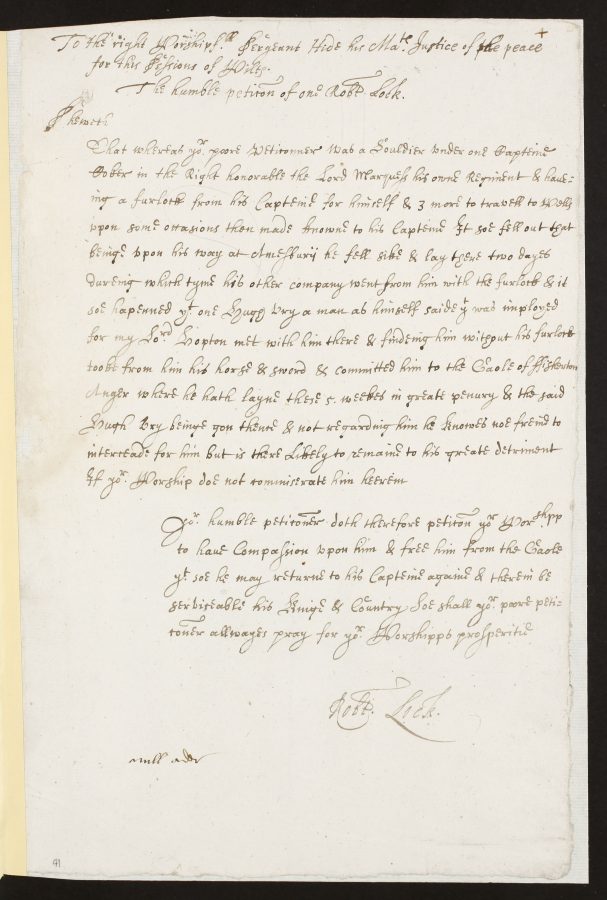 To the right Worshipf:ll Sergeant Hide his Ma:ts Justice of the peace
for this Sessions of Wilts.
The humble peticon of one Robt. Lock.
Sheweth
That whereas yor. poore Peticonner was a Souldier vnder one Capteine
in the Right honorable the Lord Marquess his owne Regiment & have=
ing a furlock from his Capteine for himself & 3 more to travell to
vpon some occasions then made knowne to his Capteine It soe fell out that
beinge vpon his way at Amesbury he fell sike & lay there two dayes
dureing which tyme his other company went from him with the furlock & it
soe hapenned yt. one Hugh Bry a man as himself saide yt was imployed
for my Lord. Hopton met with him there & findeing him without his furlock
tooke from him his horse & sword & committed him to the Gaole of ffisherton
Anger where he hath layne these 5. weekes in greate penury & the said
Hugh Bry beinge gon thence & not regarding him he knowes noe freind to
interceade for him but is there Likely to remaine to his greate detriment
If yor. Worship doe not commiserate him heerein
Yor. humble peticoner doth therefore peticon yor Worshipp
to have Compassion vpon him & free him from the Gaole
yt. soe he may returne to his Capteine againe & therein be
serviseable his Kinge & Country Soe shall yor. poore peti=
coner allwayes pray for yor. Worshipps prosperitie
Robt. Lock.
41